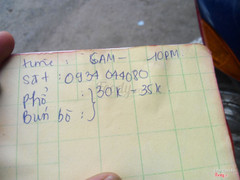 time : 6AM - 10PM
sđt : 0934 044080
phở : } 30k - 35k
Bún bò :